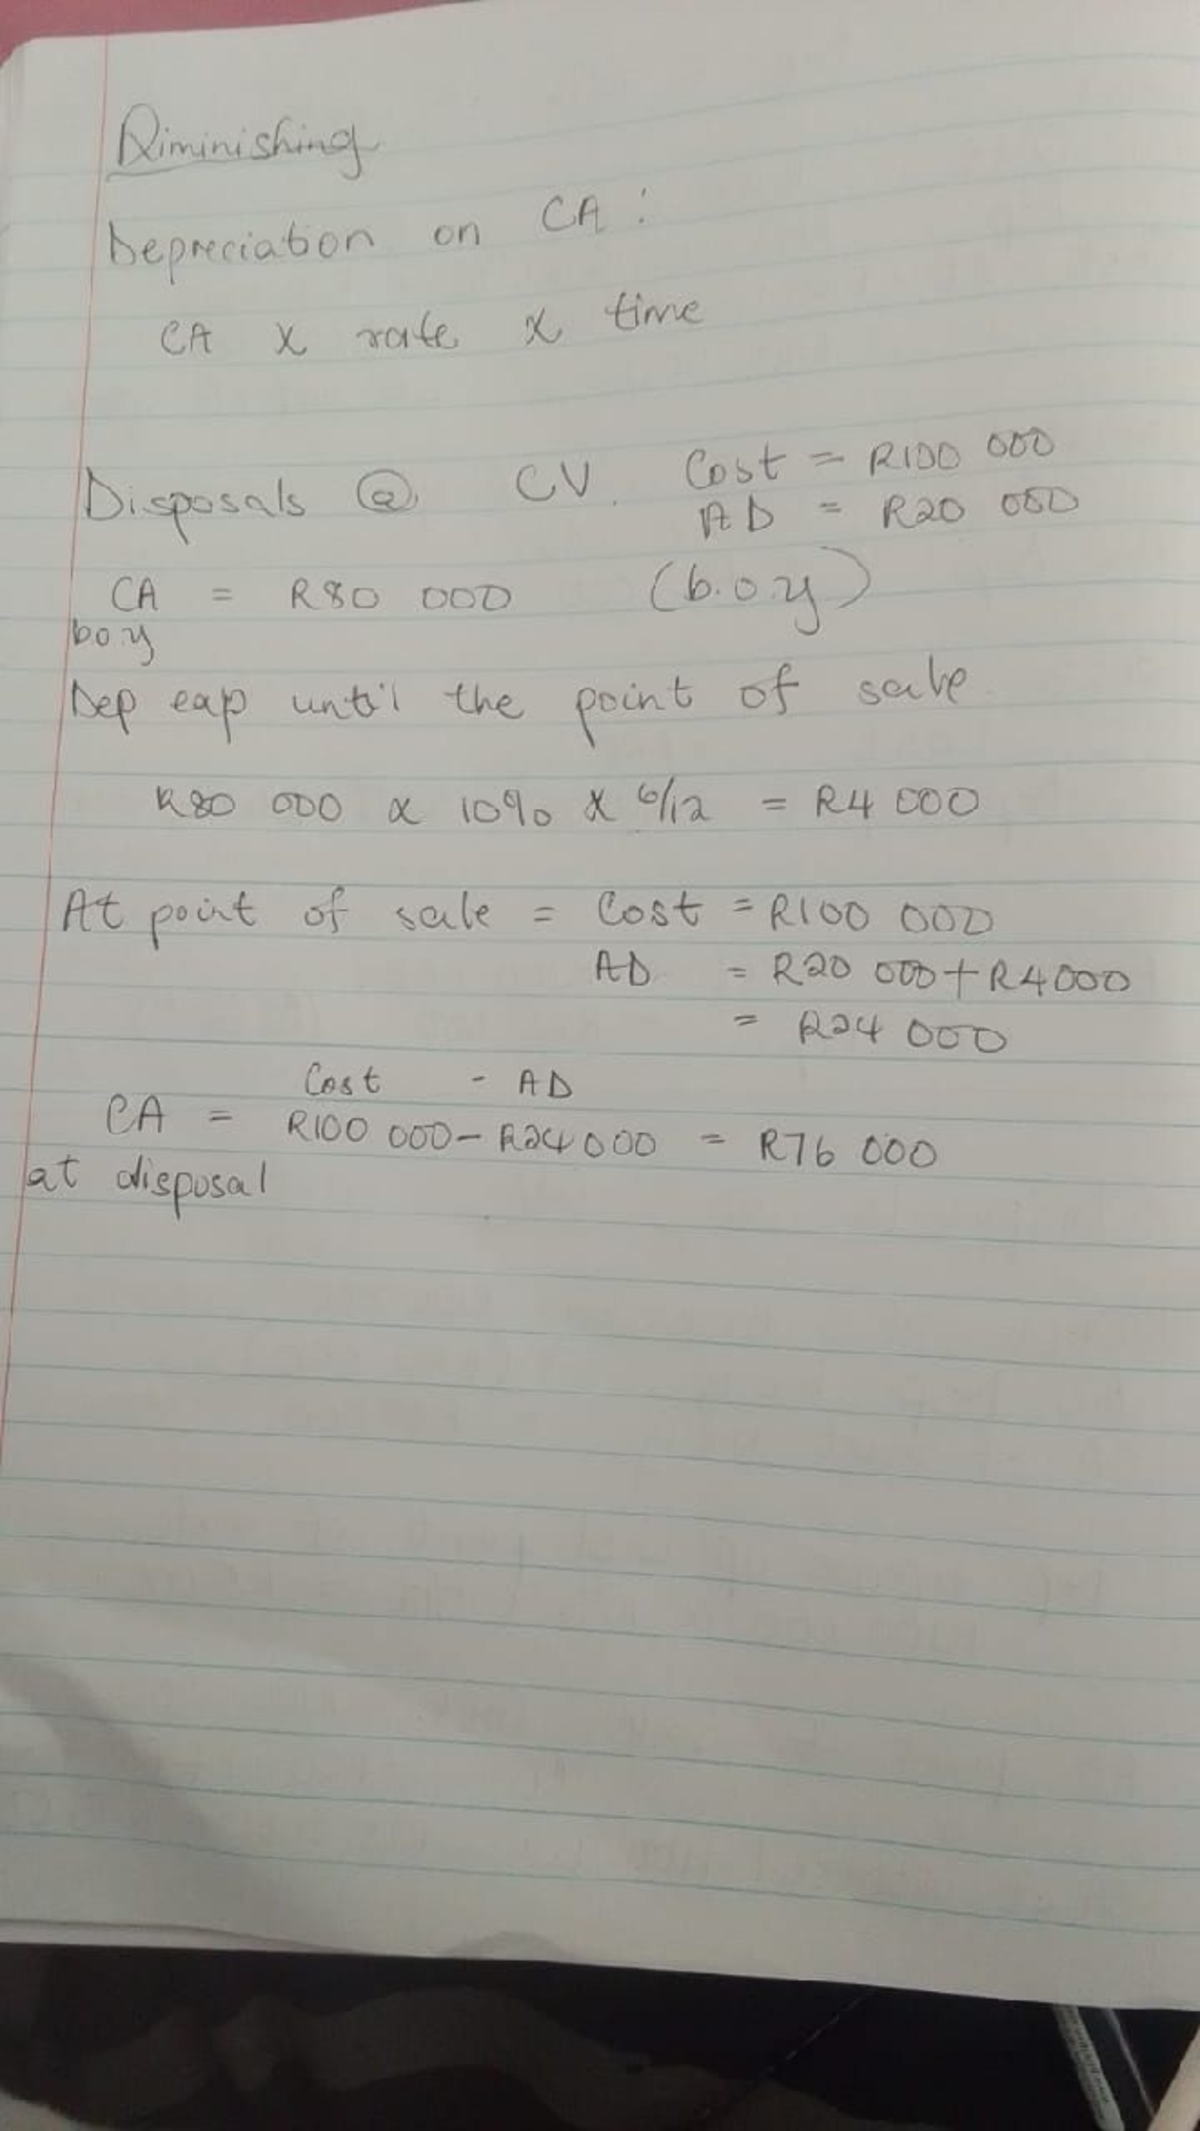 Diminishing
Depreciation on CA :
CA x rate x time
Disposals @ CV. Cost = R100 000
AD = R20 000
CA = R80 000 (b.o.y)
b.o.y
Dep exp until the point of sale
R80 000 x 10% x 6/12 = R4 000
At point of sale = Cost = R100 000
AD = R20 000 + R4000
= R24 000
Cost - AD
CA = R100 000 - R24 000 = R76 000
at disposal